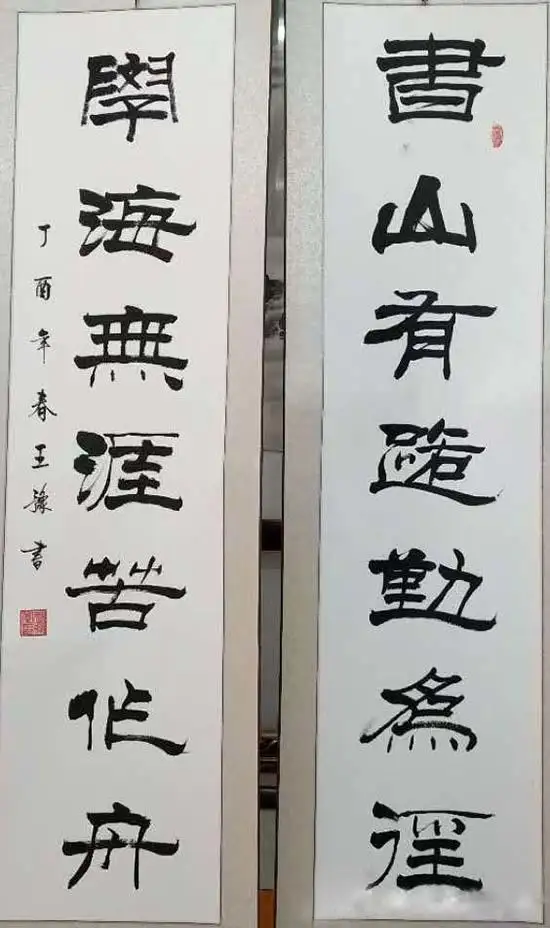 書山有路勤為徑
學海無涯苦作舟
丁酉年春王豫書